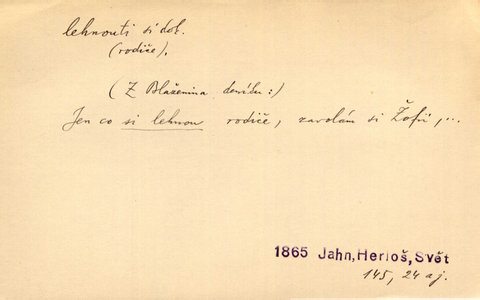 lehnouti si dok.
(rodiče).
(Z Blaženina deníku:)
Jen co si lehnou rodiče, zavolám si Žofii,...
1865 Jahn,Herloš,Svět
145, 24 aj.